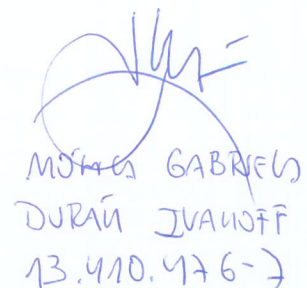 MÓNICA GABRIELA
DURÁN IVANOFF
13.410.476-7